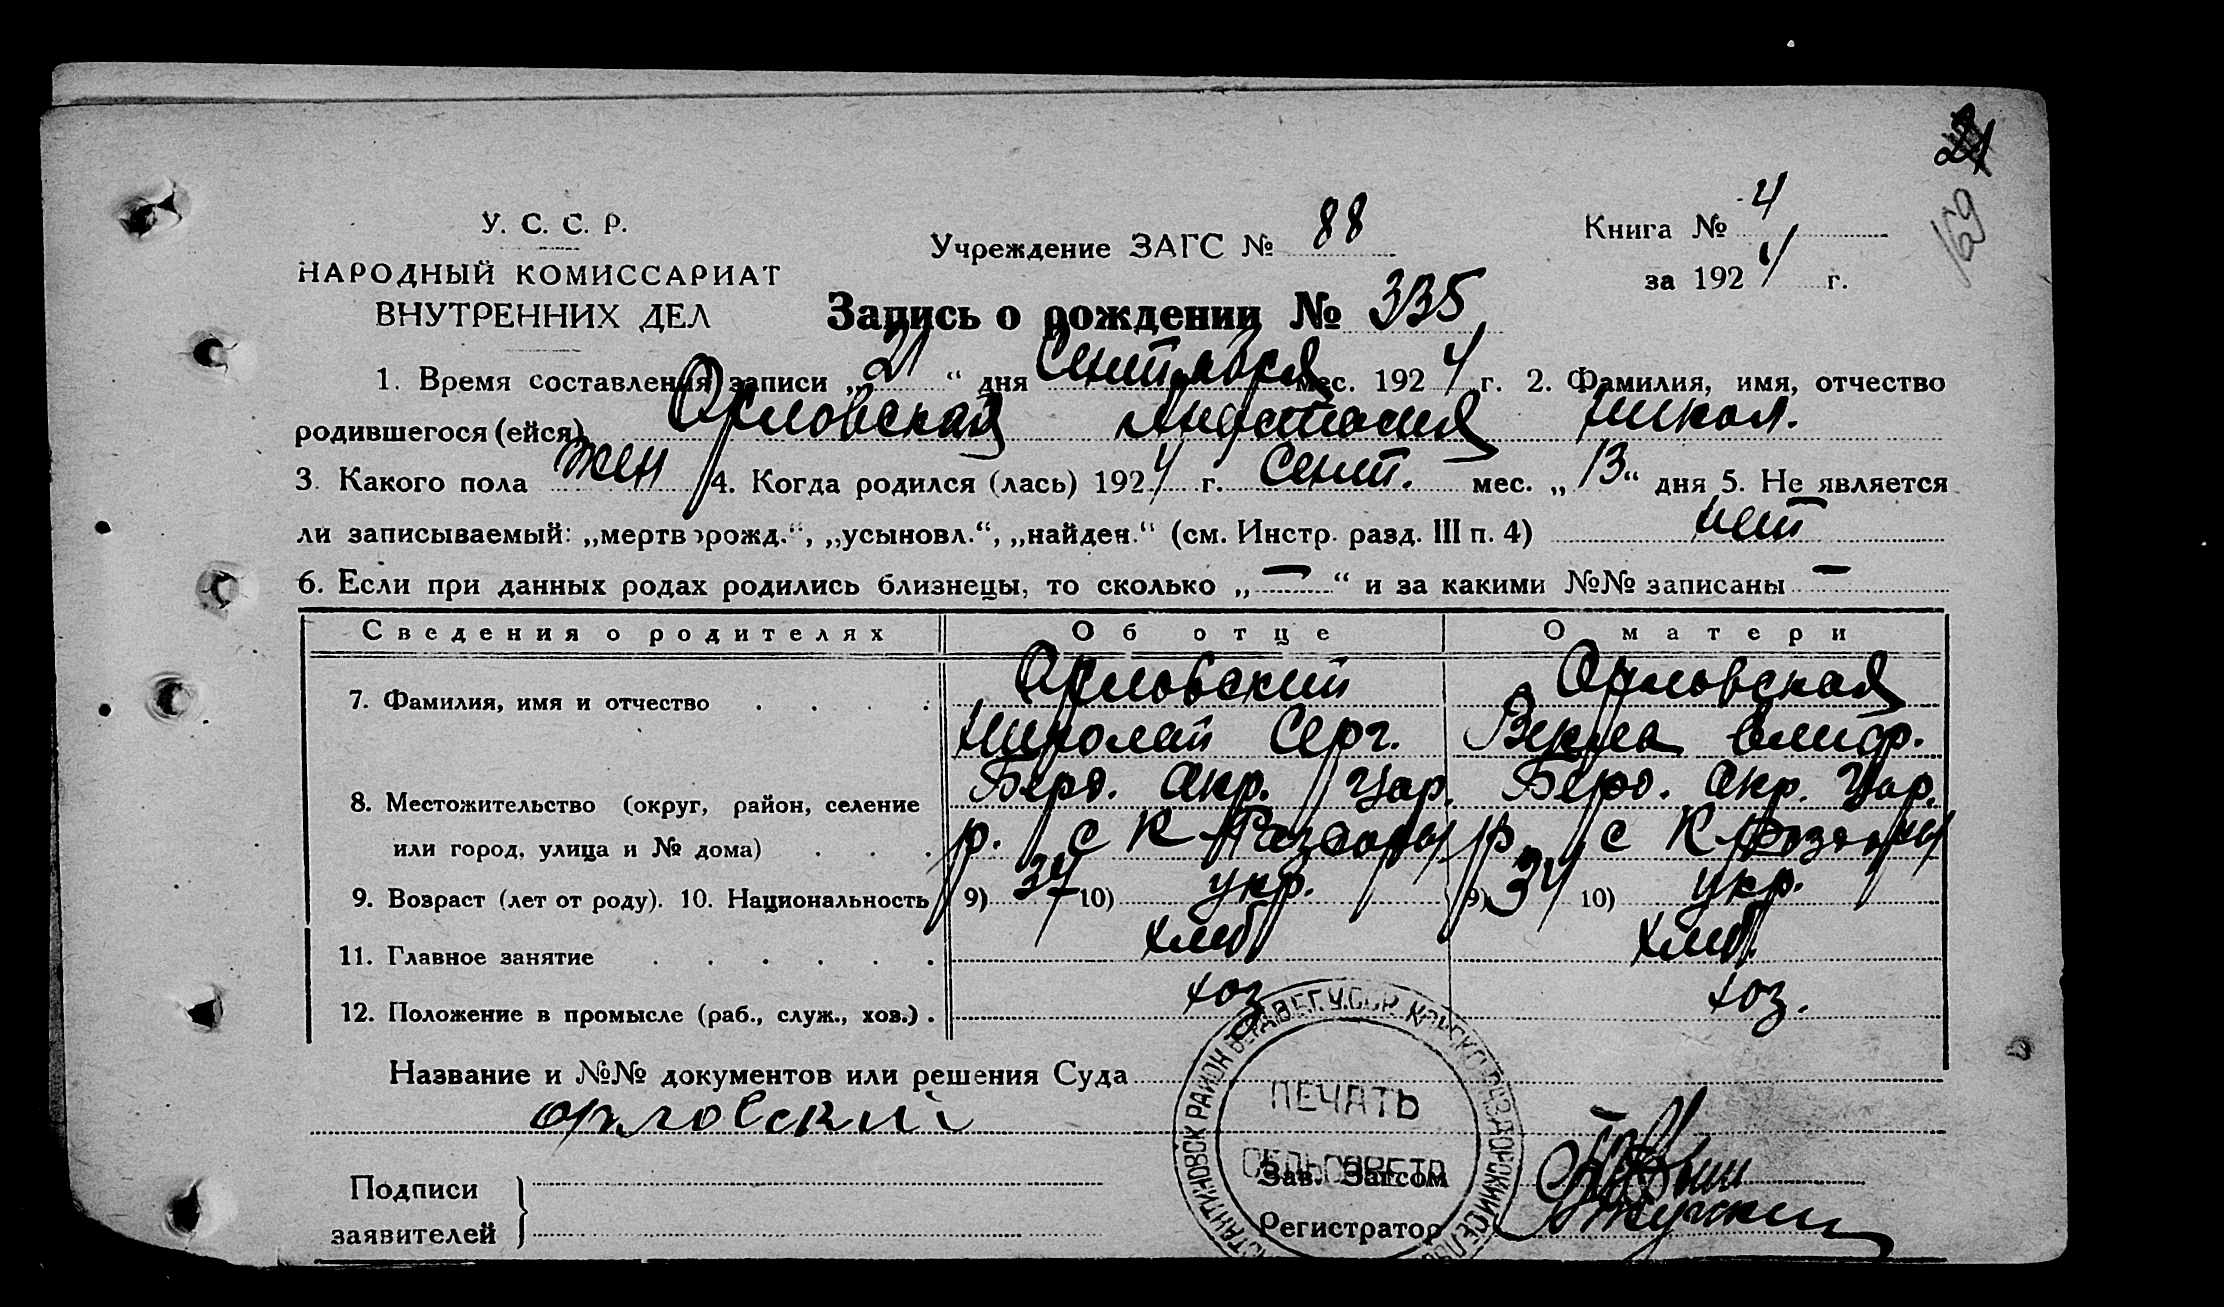 169
У. С. С. Р.
НАРОДНЫЙ КОМИССАРИАТ
ВНУТРЕННИХ ДЕЛ
Учреждение ЗАГС № 88
Книга № 4
за 1924 г.
Запись о рождении № 335
1. Время составления записи „21“ дня Сентября мес. 1924 г. 2. Фамилия, имя, отчество
родившегося (ейся) Орловская Анастасия Никол.
3. Какого пола жен 4. Когда родился (лась) 1924 г. Сент. мес. „13“ дня 5. Не является
ли записываемый: „мертворожд.“, „усыновл.“, „найден.“ (см. Инстр. разд. III п. 4) нет
6. Если при данных родах родились близнецы, то сколько „—“ и за какими №№ записаны —
Сведения о родителях Об отце О матери
7. Фамилия, имя и отчество Орловский Орловская
Николай Серг. Вера
8. Местожительство (округ, район, селение Берд. Окр. Цар. Берд. Окр. Цар.
или город, улица и № дома) р. с К р. с К
9. Возраст (лет от роду). 10. Национальность 9) 37 10) укр. 9) 34 10) укр.
11. Главное занятие хлеб хлеб.
12. Положение в промысле (раб., служ., хоз.) хоз хоз.
Название и №№ документов или решения Суда
орловский
Подписи
заявителей
ПЕЧАТЬ
СЕЛЬСОВЕТА
Зав. Загсом
Регистратор